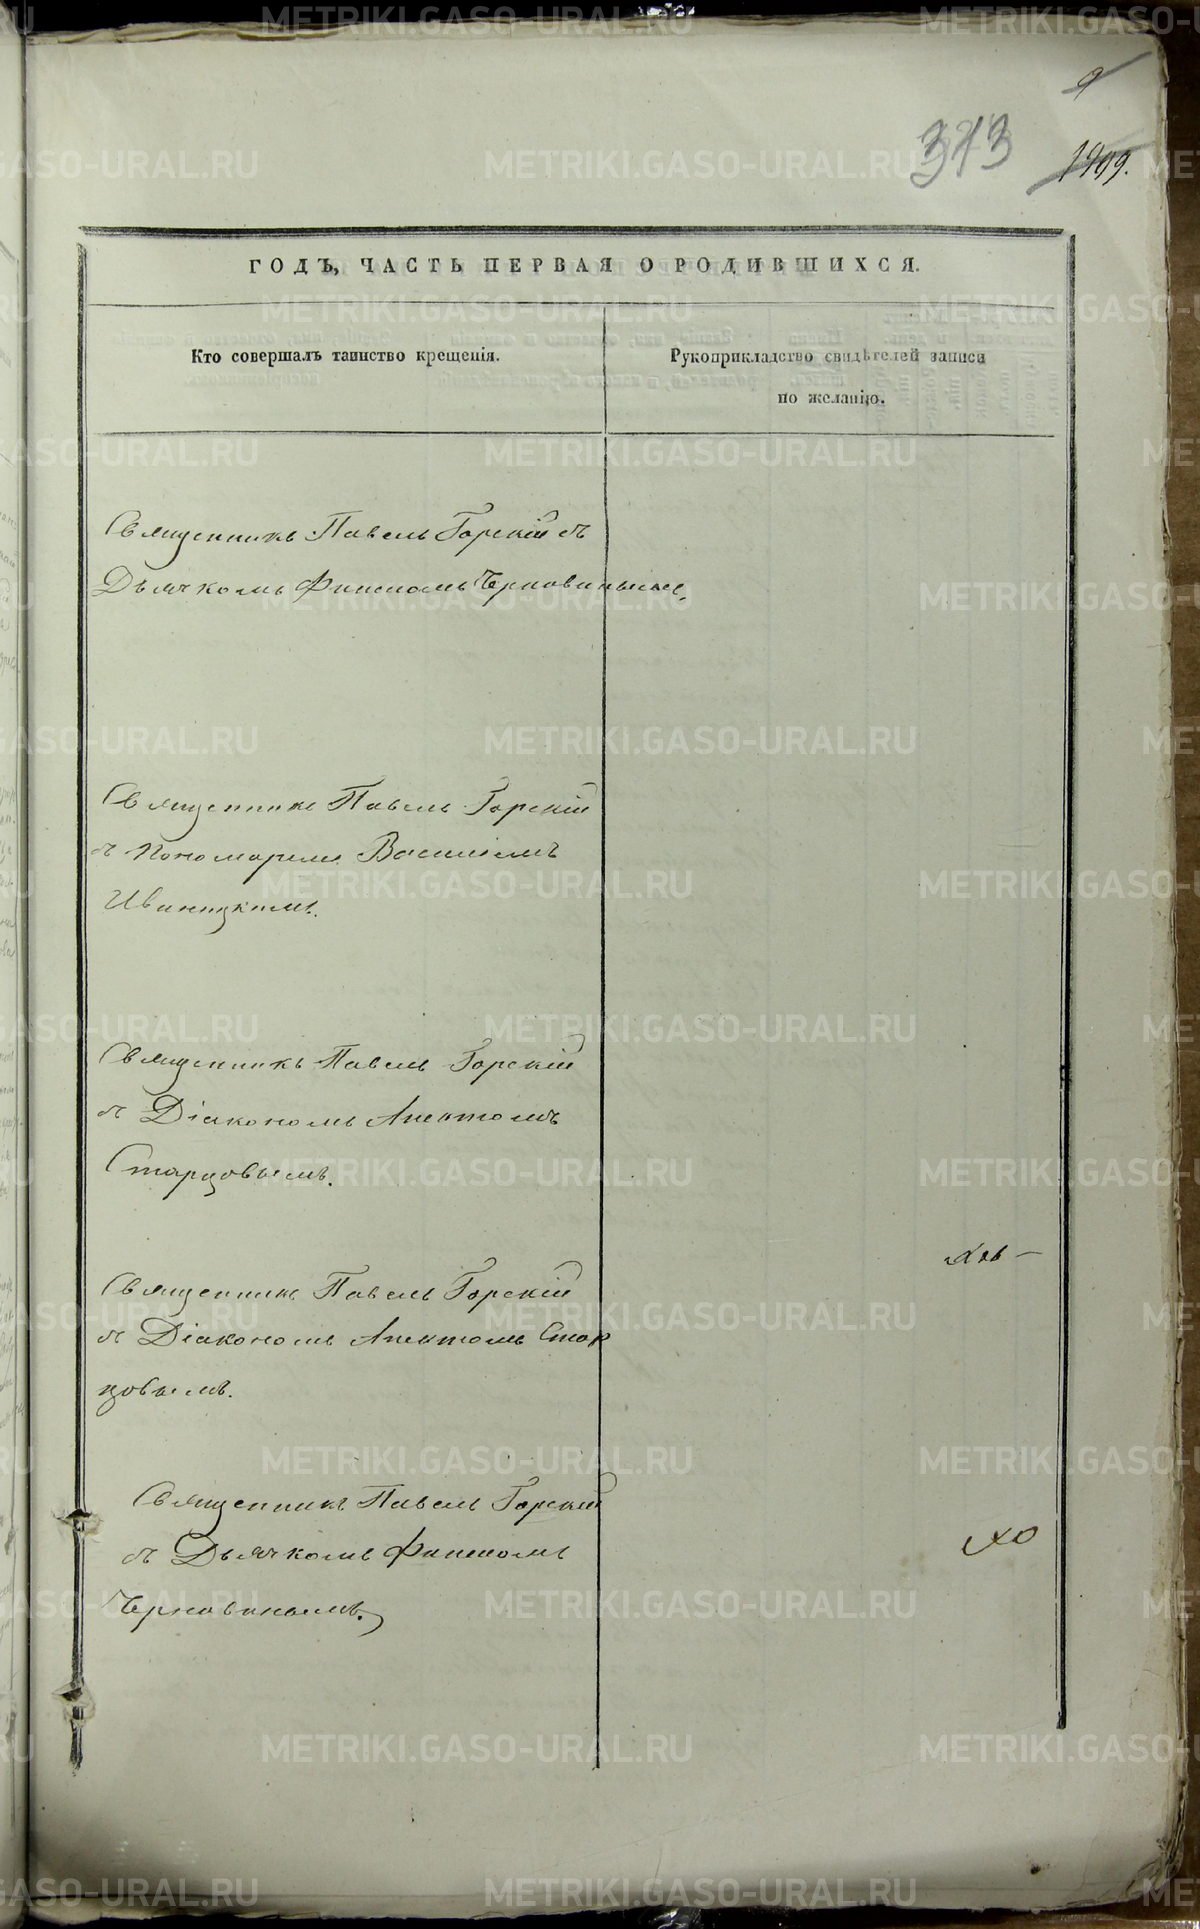 9
313
1909.
ГОДЪ, ЧАСТЬ ПЕРВАЯ О РОДИВШИХСЯ.
Кто совершалъ таинство крещенія.
Рукоприкладство свидѣтелей записи
по желанію.
Священникъ Павелъ Горскій съ
Дьячкомъ Финеномъ Черновинымъ.
Священникъ Павелъ Горскій
съ Пономаремъ Василіемъ
Священникъ Павелъ Горскій
съ Діакономъ Аниктомъ
Старцовымъ.
Священникъ Павелъ Горскій
съ Діакономъ Аниктомъ Стар
цовымъ.
Священникъ Павелъ Горскій
съ Дьячкомъ
METRIKI.GASO-URAL.RU